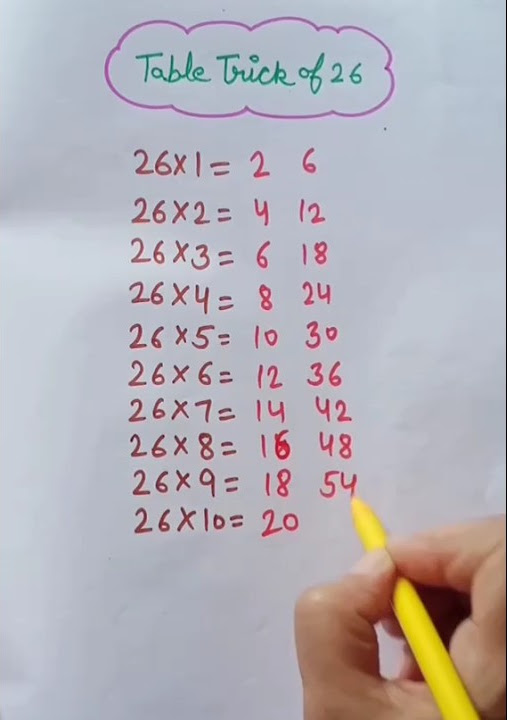 Table Trick of 26
26×1= 2 6
26×2= 4 12
26×3= 6 18
26×4= 8 24
26×5= 10 30
26×6= 12 36
26×7= 14 42
26×8= 16 48
26×9= 18 54
26×10= 20